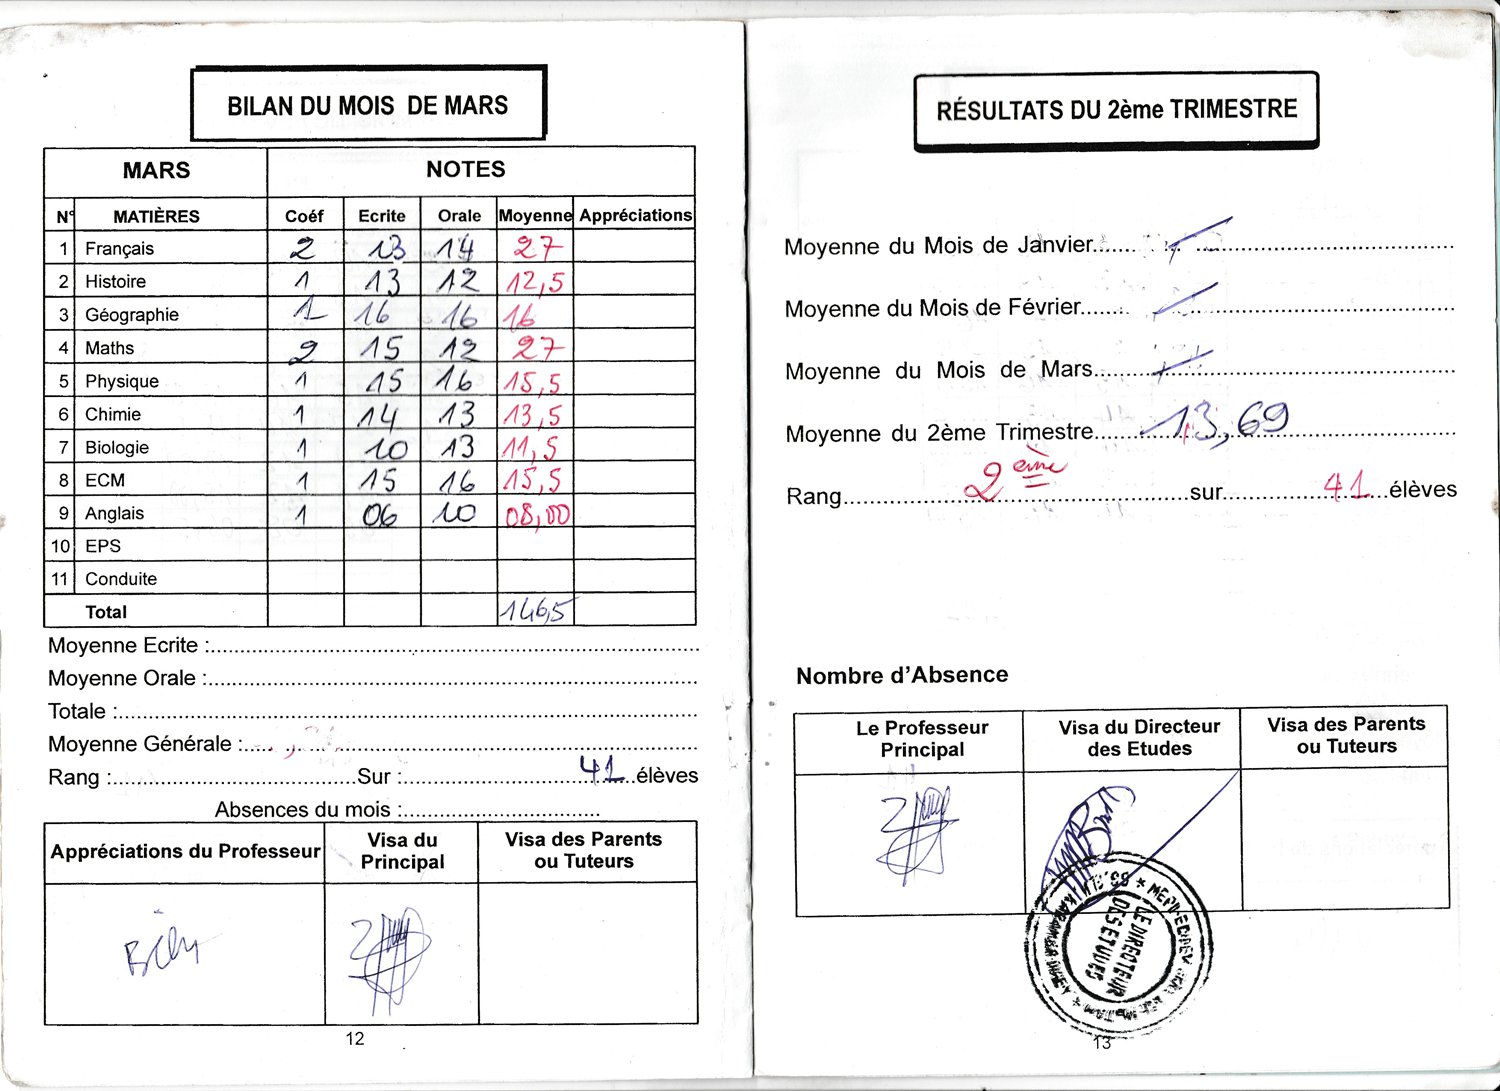 BILAN DU MOIS DE MARS
MARS NOTES
N° MATIÈRES Coéf Ecrite Orale Moyenne Appréciations
1 Français 2 13 14 27
2 Histoire 1 13 12 12,5
3 Géographie 1 16 16 16
4 Maths 2 15 12 27
5 Physique 1 15 16 15,5
6 Chimie 1 14 13 13,5
7 Biologie 1 10 13 11,5
8 ECM 1 15 16 15,5
9 Anglais 1 06 10 08,00
10 EPS
11 Conduite
Total 146,5
Moyenne Ecrite :
Moyenne Orale :
Totale :
Moyenne Générale :
Rang : Sur : 41 élèves
Absences du mois :
Appréciations du Professeur Visa du Principal Visa des Parents ou Tuteurs
Bien
12
RÉSULTATS DU 2ème TRIMESTRE
Moyenne du Mois de Janvier
Moyenne du Mois de Février
Moyenne du Mois de Mars
Moyenne du 2ème Trimestre 13,69
Rang 2ème sur 41 élèves
Nombre d'Absence
Le Professeur Principal Visa du Directeur des Etudes Visa des Parents ou Tuteurs
LE DIRECTEUR
DES ETUDES
13